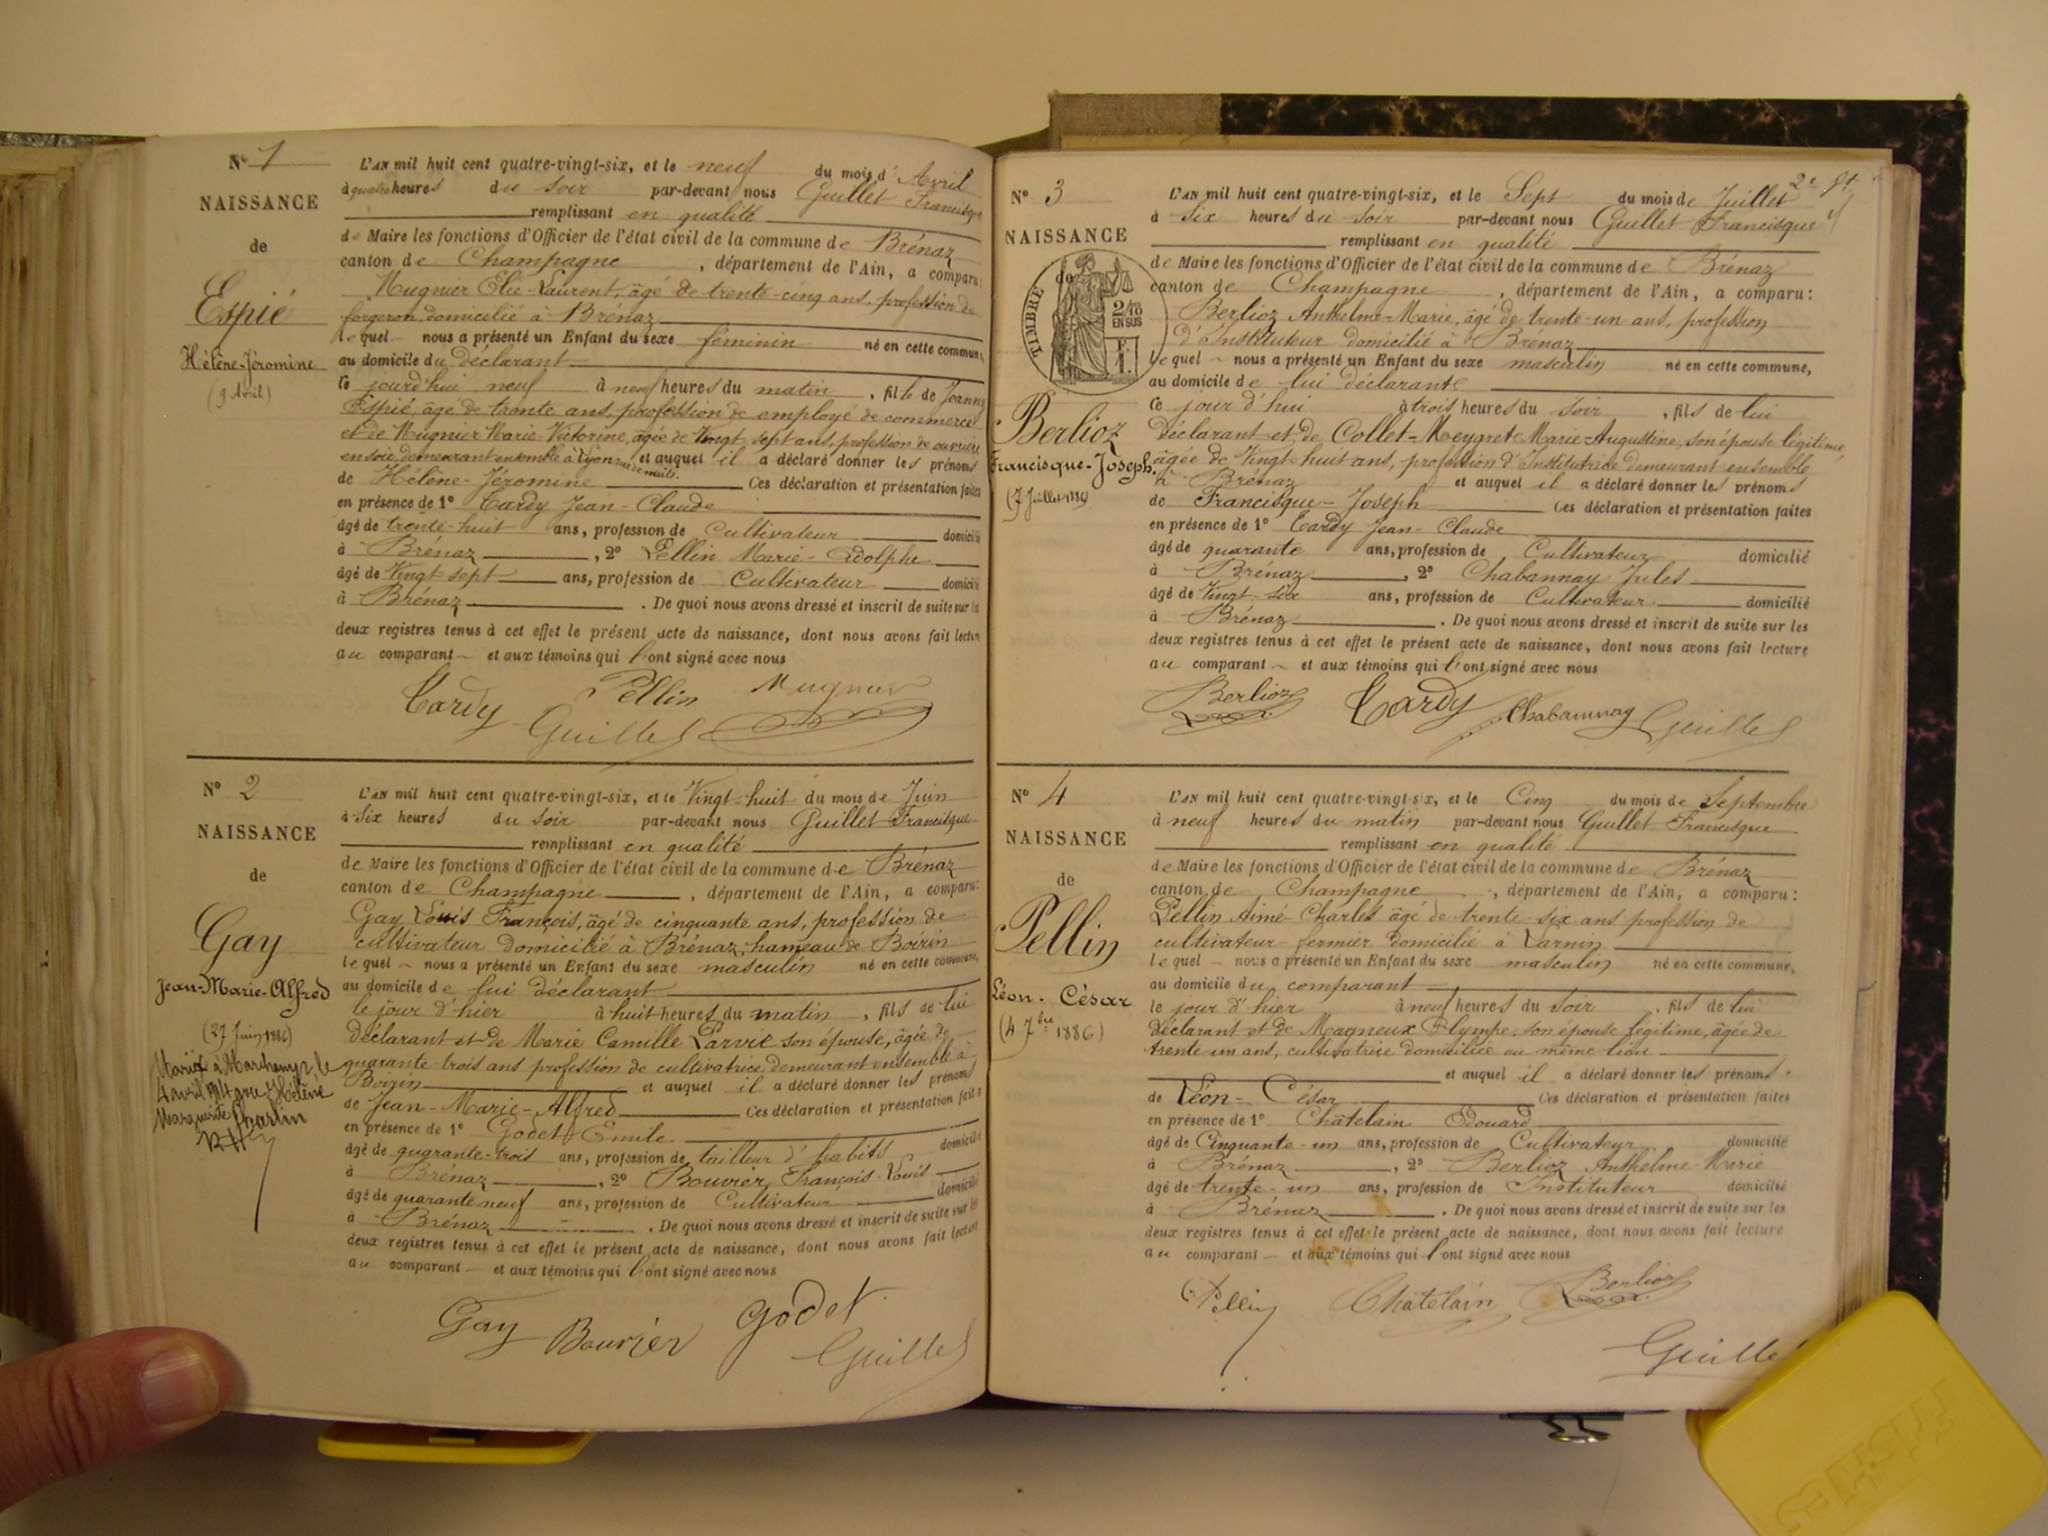 N° 1
NAISSANCE
de
Espié
Hélène-Jéromine
(9 Avril)
L'AN mil huit cent quatre-vingt-six, et le neuf du mois d'Avril
à quatre heures du soir par-devant nous Guillet Francisque
remplissant en qualité
de Maire les fonctions d'Officier de l'état civil de la commune de Brénaz
canton de Champagne, département de l'Ain, a comparu:
Mugnier Élie-Laurent, âgé de trente-cinq ans, profession de
forgeron domicilié à Brénaz
lequel nous a présenté un Enfant du sexe féminin né en cette commune,
au domicile du déclarant
Ce jourd'hui neuf à neuf heures du matin, fille de Jeanny
Espié, âgé de trente ans, profession de employé de commerce
et de Mugnier Marie Victorine, âgée de vingt sept ans, profession de ouvrière
en soie, demeurant ensemble à Lyon et auquel il a déclaré donner les prénoms
de Hélène-Jéromine Ces déclaration et présentation faites
en présence de 1° Tardy Jean-Claude
âgé de trente-huit ans, profession de Cultivateur domicilié
à Brénaz, 2° Pellin Marie-Adolphe
âgé de Vingt-sept ans, profession de Cultivateur domicilié
à Brénaz. De quoi nous avons dressé et inscrit de suite sur les
deux registres tenus à cet effet le présent acte de naissance, dont nous avons fait lecture
au comparant et aux témoins qui l'ont signé avec nous
Tardy Pellin Mugnier
Guillet
N° 2
NAISSANCE
de
Gay
Jean-Marie-Alfred
(27 Juin 1886)
Marié à
4 avril avec Hélène
Marguerite
L'AN mil huit cent quatre-vingt-six, et le Vingt-huit du mois de Juin
à Six heures du soir par-devant nous Guillet Francisque
remplissant en qualité
de Maire les fonctions d'Officier de l'état civil de la commune de Brénaz
canton de Champagne, département de l'Ain, a comparu:
Gay Louis François, âgé de cinquante ans, profession de
cultivateur domicilié à Brénaz, hameau de Boirin
lequel nous a présenté un Enfant du sexe masculin né en cette commune,
au domicile de lui déclarant
le jour d'hier à huit heures du matin, fils de lui
déclarant et de Marie Camille Parvic son épouse, âgée de
quarante-trois ans profession de cultivatrice, demeurant ensemble à
Boirin et auquel il a déclaré donner les prénoms
de Jean-Marie-Alfred Ces déclaration et présentation faites
en présence de 1° Godet Emile
âgé de quarante-trois ans, profession de tailleur d'habits domicilié
à Brénaz, 2° Bouvier, François-Louis
âgé de quarante neuf ans, profession de Cultivateur domicilié
à Brénaz. De quoi nous avons dressé et inscrit de suite sur les
deux registres tenus à cet effet le présent acte de naissance, dont nous avons fait lecture
au comparant et aux témoins qui l'ont signé avec nous
Gay Bouvier Godet
Guillet
2e
N° 3
NAISSANCE
de
TIMBRE
2/10
EN SUS
Berlioz
Francisque-Joseph.
L'AN mil huit cent quatre-vingt-six, et le Sept du mois de Juillet
à Six heures du soir par-devant nous Guillet Francisque
remplissant en qualité
de Maire les fonctions d'Officier de l'état civil de la commune de Brénaz
canton de Champagne, département de l'Ain, a comparu:
Berlioz Anthelme-Marie, âgé de trente-un ans, profession
d'Instituteur domicilié à Brénaz
lequel nous a présenté un Enfant du sexe masculin né en cette commune,
au domicile de lui déclarant
Ce jour d'hui à trois heures du soir, fils de lui
déclarant et de Collet-Meygret Marie-Augustine, son épouse légitime,
âgée de vingt-huit ans, profession d'Institutrice demeurant ensemble
à Brénaz et auquel il a déclaré donner les prénoms
de Francisque-Joseph Ces déclaration et présentation faites
en présence de 1° Tardy Jean-Claude
âgé de quarante ans, profession de Cultivateur domicilié
à Brénaz, 2° Chabannay Jules
âgé de Vingt-six ans, profession de Cultivateur domicilié
à Brénaz. De quoi nous avons dressé et inscrit de suite sur les
deux registres tenus à cet effet le présent acte de naissance, dont nous avons fait lecture
au comparant et aux témoins qui l'ont signé avec nous
Berlioz Tardy Chabannay Guillet
N° 4
NAISSANCE
de
Pellin
Léon-César
(4 7bre 1886)
L'AN mil huit cent quatre-vingt-six, et le Cinq du mois de Septembre
à neuf heures du matin par-devant nous Guillet Francisque
remplissant en qualité
de Maire les fonctions d'Officier de l'état civil de la commune de Brénaz
canton de Champagne, département de l'Ain, a comparu:
Pellin Aimé-Charles âgé de trente-six ans profession de
cultivateur-fermier domicilié à Larnin
lequel nous a présenté un Enfant du sexe masculin né en cette commune,
au domicile du comparant
le jour d'hier à neuf heures du soir, fils de lui
déclarant et de Magneux Olympe, son épouse légitime, âgée de
trente un ans, cultivatrice domiciliée au même lieu
et auquel il a déclaré donner les prénoms
de Léon-César Ces déclaration et présentation faites
en présence de 1° Châtelain Edouard
âgé de Cinquante-un ans, profession de Cultivateur domicilié
à Brénaz, 2° Berlioz Anthelme Marie
âgé de trente-un ans, profession de Instituteur domicilié
à Brénaz. De quoi nous avons dressé et inscrit de suite sur les
deux registres tenus à cet effet le présent acte de naissance, dont nous avons fait lecture
au comparant et aux témoins qui l'ont signé avec nous
Pellin Châtelain Berlioz
Guillet